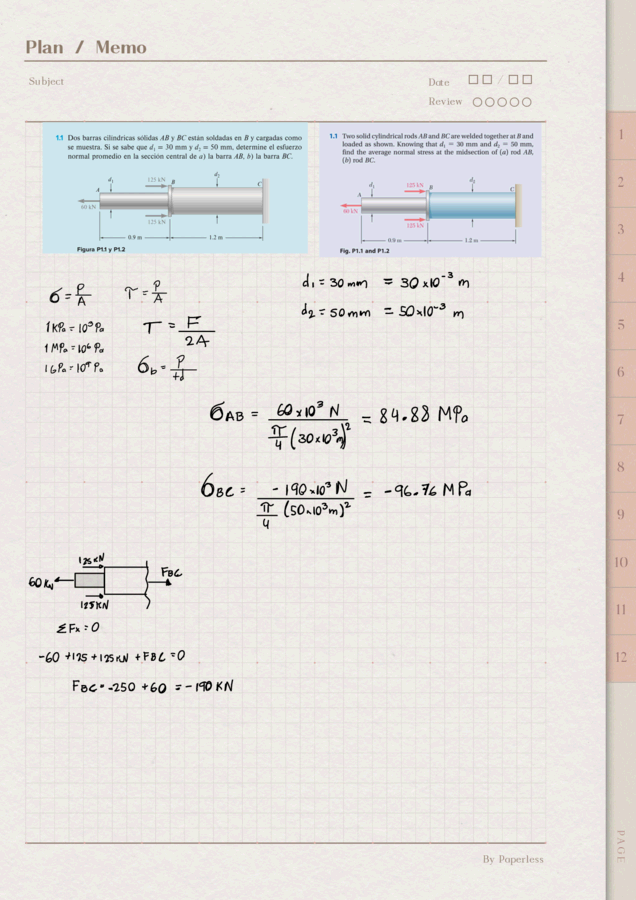 Plan / Memo
Subject
Date
Review
1.1 Dos barras cilíndricas sólidas AB y BC están soldadas en B y cargadas como
se muestra. Si se sabe que d₁ = 30 mm y d₂ = 50 mm, determine el esfuerzo
normal promedio en la sección central de a) la barra AB, b) la barra BC.
d₁
125 kN
B
d₂
C
A
60 kN
125 kN
0.9 m
1.2 m
Figura P1.1 y P1.2
1.1 Two solid cylindrical rods AB and BC are welded together at B and
loaded as shown. Knowing that d₁ = 30 mm and d₂ = 50 mm,
find the average normal stress at the midsection of (a) rod AB,
(b) rod BC.
d₁
125 kN
B
d₂
C
A
60 kN
125 kN
0.9 m
1.2 m
Fig. P1.1 and P1.2
σ = P/A
τ = P/A
d₁ = 30 mm = 30 x10⁻³ m
d₂ = 50 mm = 50x10⁻³ m
1 KPa = 10³ Pa
1 MPa = 10⁶ Pa
1 GPa = 10⁹ Pa
τ = F/2A
σb = P/td
σAB = 60x10³ N / π/4 (30x10³m)² = 84.88 MPa
σBC = -190x10³ N / π/4 (50x10³m)² = -96.76 MPa
125KN
60KN
FBC
125KN
ΣFx = 0
-60 +125 +125KN +FBC = 0
FBC = -250 +60 = -190 KN
1
2
3
4
5
6
7
8
9
10
11
12
PAGE
By Paperless